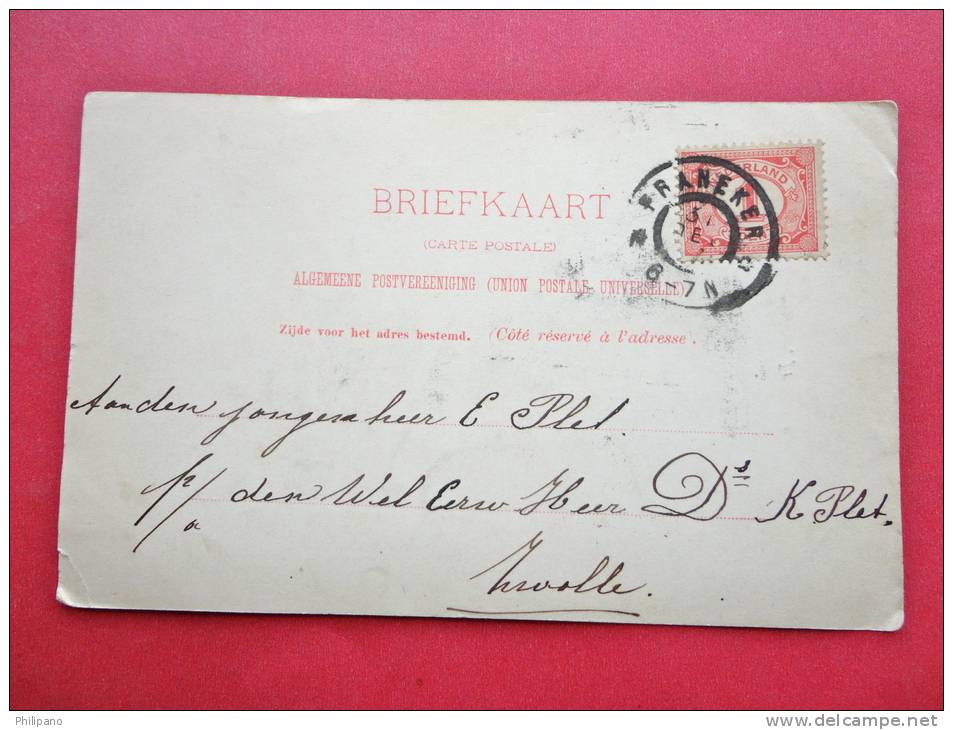 BRIEFKAART
(CARTE POSTALE)
ALGEMEENE POSTVEREENIGING (UNION POSTALE UNIVERSELLE)
Zijde voor het adres bestemd. (Côté réservé à l'adresse.
FRANEKER
6-7N
Aan den jongenheer E Plet.
p/a den Wel Eerw Heer Ds K Plet.
Zwolle.
Philipano
www.delcampe.net